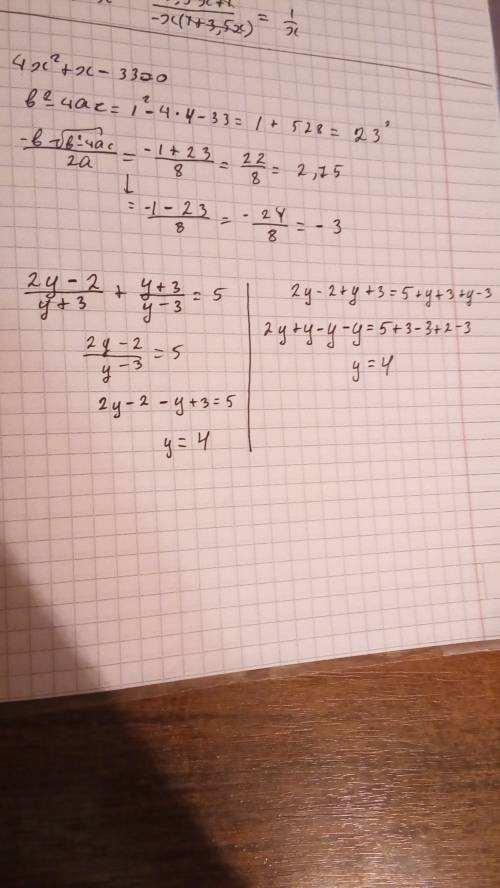 -x(1+3,5x) = 1/x
4x²+x-33=0
в²-4ac = 1²-4·4-33 = 1 + 528 = 23²
-в √в²-4ac / 2a = -1+23 / 8 = 22/8 = 2,75
↓ = -1-23 / 8 = -24/8 = -3
2y-2 / y+3 + y+3 / y-3 = 5
2y-2 / y-3 = 5
2y-2-y+3=5
y=4
2y-2+y+3=5+y+3+y-3
2y+y-y-y=5+3-3+2-3
y=4